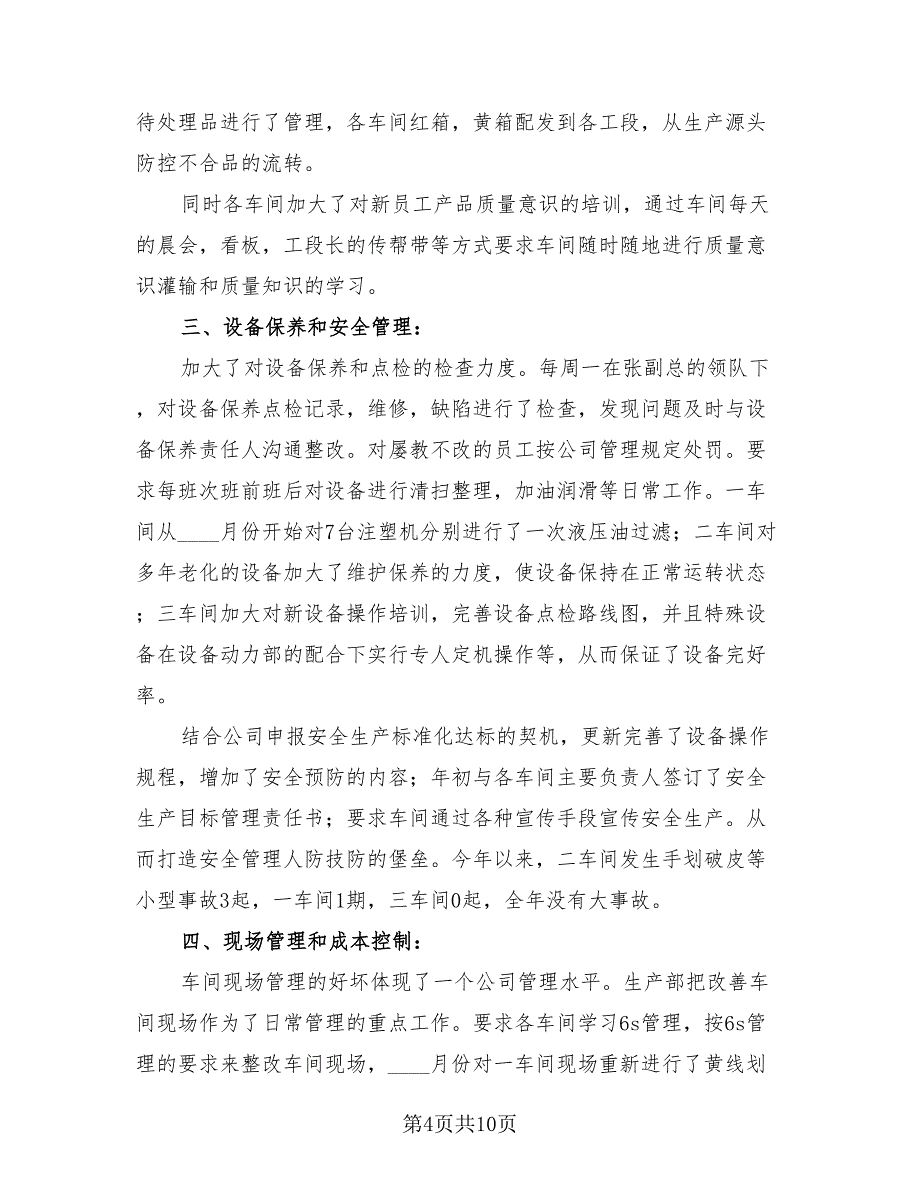 待处理品进行了管理，各车间红箱，黄箱配发到各工段，从生产源头
防控不合品的流转。
同时各车间加大了对新员工产品质量意识的培训，通过车间每天
的晨会，看板，工段长的传帮带等方式要求车间随时随地进行质量意
识灌输和质量知识的学习。
三、设备保养和安全管理：
加大了对设备保养和点检的检查力度。每周一在张副总的领队下
，对设备保养点检记录，维修，缺陷进行了检查，发现问题及时与设
备保养责任人沟通整改。对屡教不改的员工按公司管理规定处罚。要
求每班次班前班后对设备进行清扫整理，加油润滑等日常工作。一车
间从____月份开始对7台注塑机分别进行了一次液压油过滤；二车间对
多年老化的设备加大了维护保养的力度，使设备保持在正常运转状态
；三车间加大对新设备操作培训，完善设备点检路线图，并且特殊设
备在设备动力部的配合下实行专人定机操作等，从而保证了设备完好
率。
结合公司申报安全生产标准化达标的契机，更新完善了设备操作
规程，增加了安全预防的内容；年初与各车间主要负责人签订了安全
生产目标管理责任书；要求车间通过各种宣传手段宣传安全生产。从
而打造安全管理人防技防的堡垒。今年以来，二车间发生手划破皮等
小型事故3起，一车间1期，三车间0起，全年没有大事故。
四、现场管理和成本控制：
车间现场管理的好坏体现了一个公司管理水平。生产部把改善车
间现场作为了日常管理的重点工作。要求各车间学习6s管理，按6s管
理的要求来整改车间现场，____月份对一车间现场重新进行了黄线划
第4页共10页